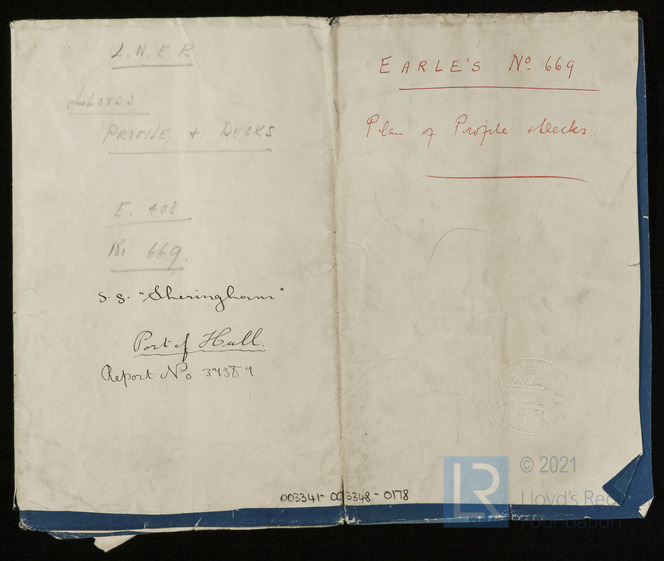 L.N.E.R
LLOYDS
PROFILE & DECKS
E. 408
No 669.
S.S. "Sheringham"
Port of Hull.
Report No
003341-003348-0178
EARLE'S No. 669
Plan of Profile & Decks.
LR
© 2021
Lloyd's Reg
Foundation